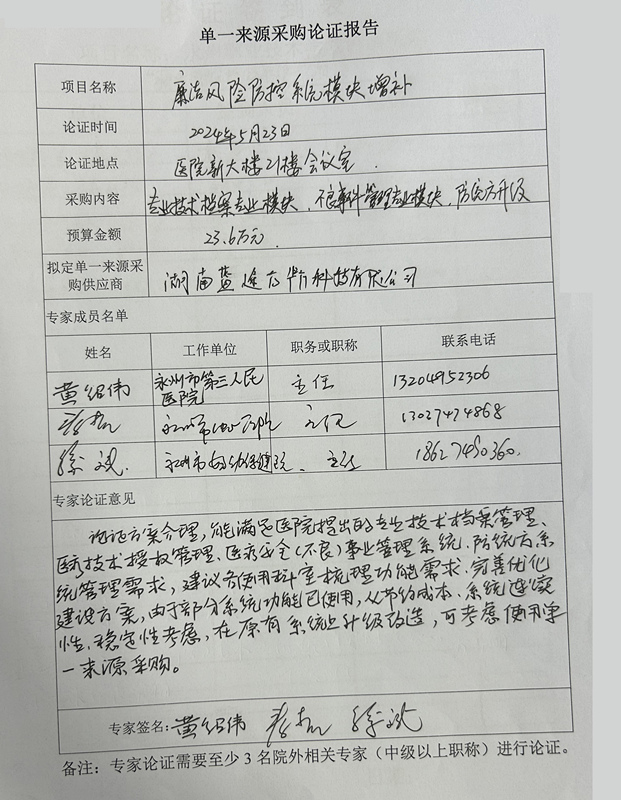 单一来源采购论证报告
项目名称 廉洁风险防控系统模块增补
论证时间 2024年5月23日
论证地点 医院新大楼21楼会议室.
采购内容 专业技术档案专业模块、不良事件管理专业模块、防统方升级
预算金额 23.6万元.
拟定单一来源采
购供应商
湖南蓝途方鼎科技有限公司
专家成员名单
姓名 工作单位 职务或职称 联系电话
黄绍伟 永州市第三人民
医院 主任 13204952306
永州市 主任 13027474868
徐斌. 永州市妇幼保健院、 主任 18627490360.
专家论证意见
论证方案合理,能满足医院提出的专业技术档案管理、
医疗技术授权管理、医疗安全(不良)事业管理系统、防统方系
统管理需求,建议各使用科室梳理功能需求、完善优化
建设方案,由于部分系统功能已使用,从节约成本、系统连续
性、稳定性考虑,在原有系统上升级改造,可考虑使用单
一来源采购。
专家签名:黄绍伟 徐斌
备注:专家论证需要至少3名院外相关专家(中级以上职称)进行论证。